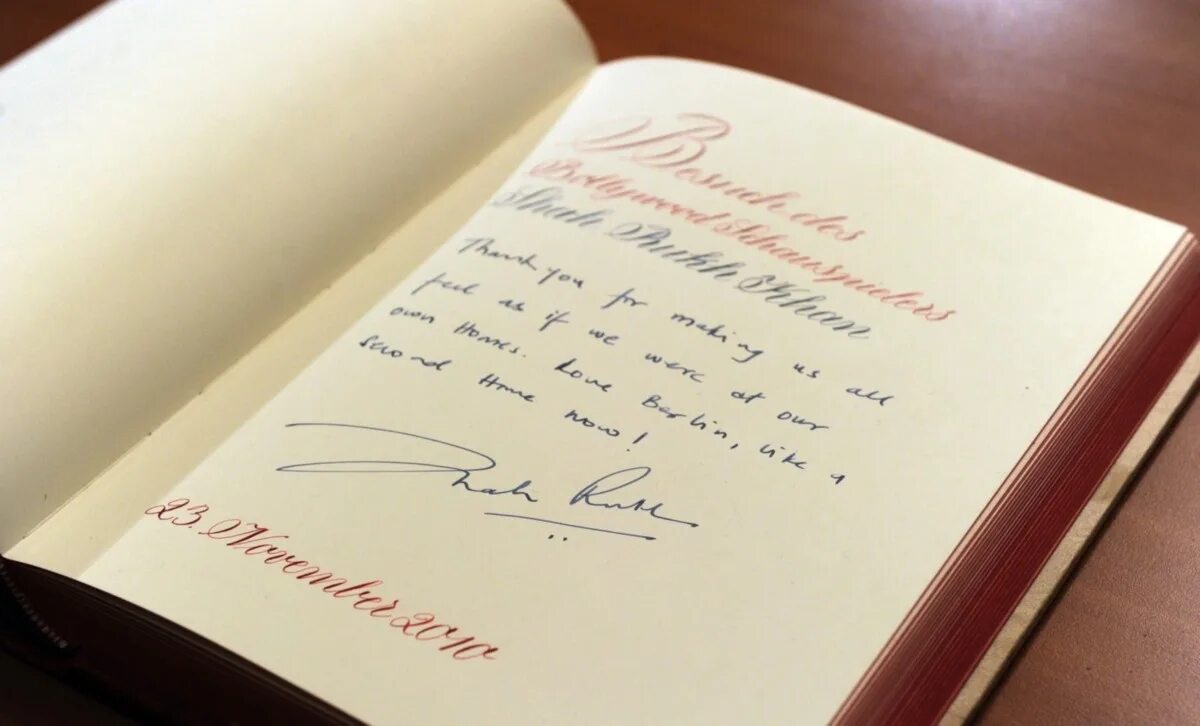 Besuch des
Bollywood Schauspielers
Shah Rukh Khan
Thank you for making us all
feel as if we were at our
own Homes. Love Berlin, like a
second Home now!
Shah Rukh
23. November 2010